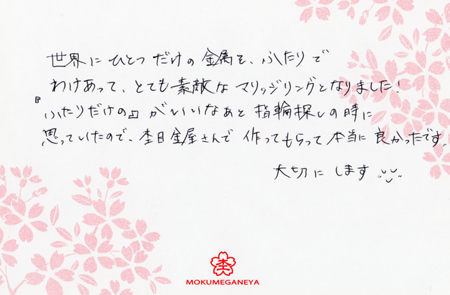 世界にひとつだけの金属を、ふたりで
わけあって、とても素敵なマリッジリングとなりました！
『ふたりだけの』がいいなあと指輪探しの時に
思っていたので、杢目金屋さんで作ってもらって本当に良かったです。
大切にします
MOKUMEGANEYA